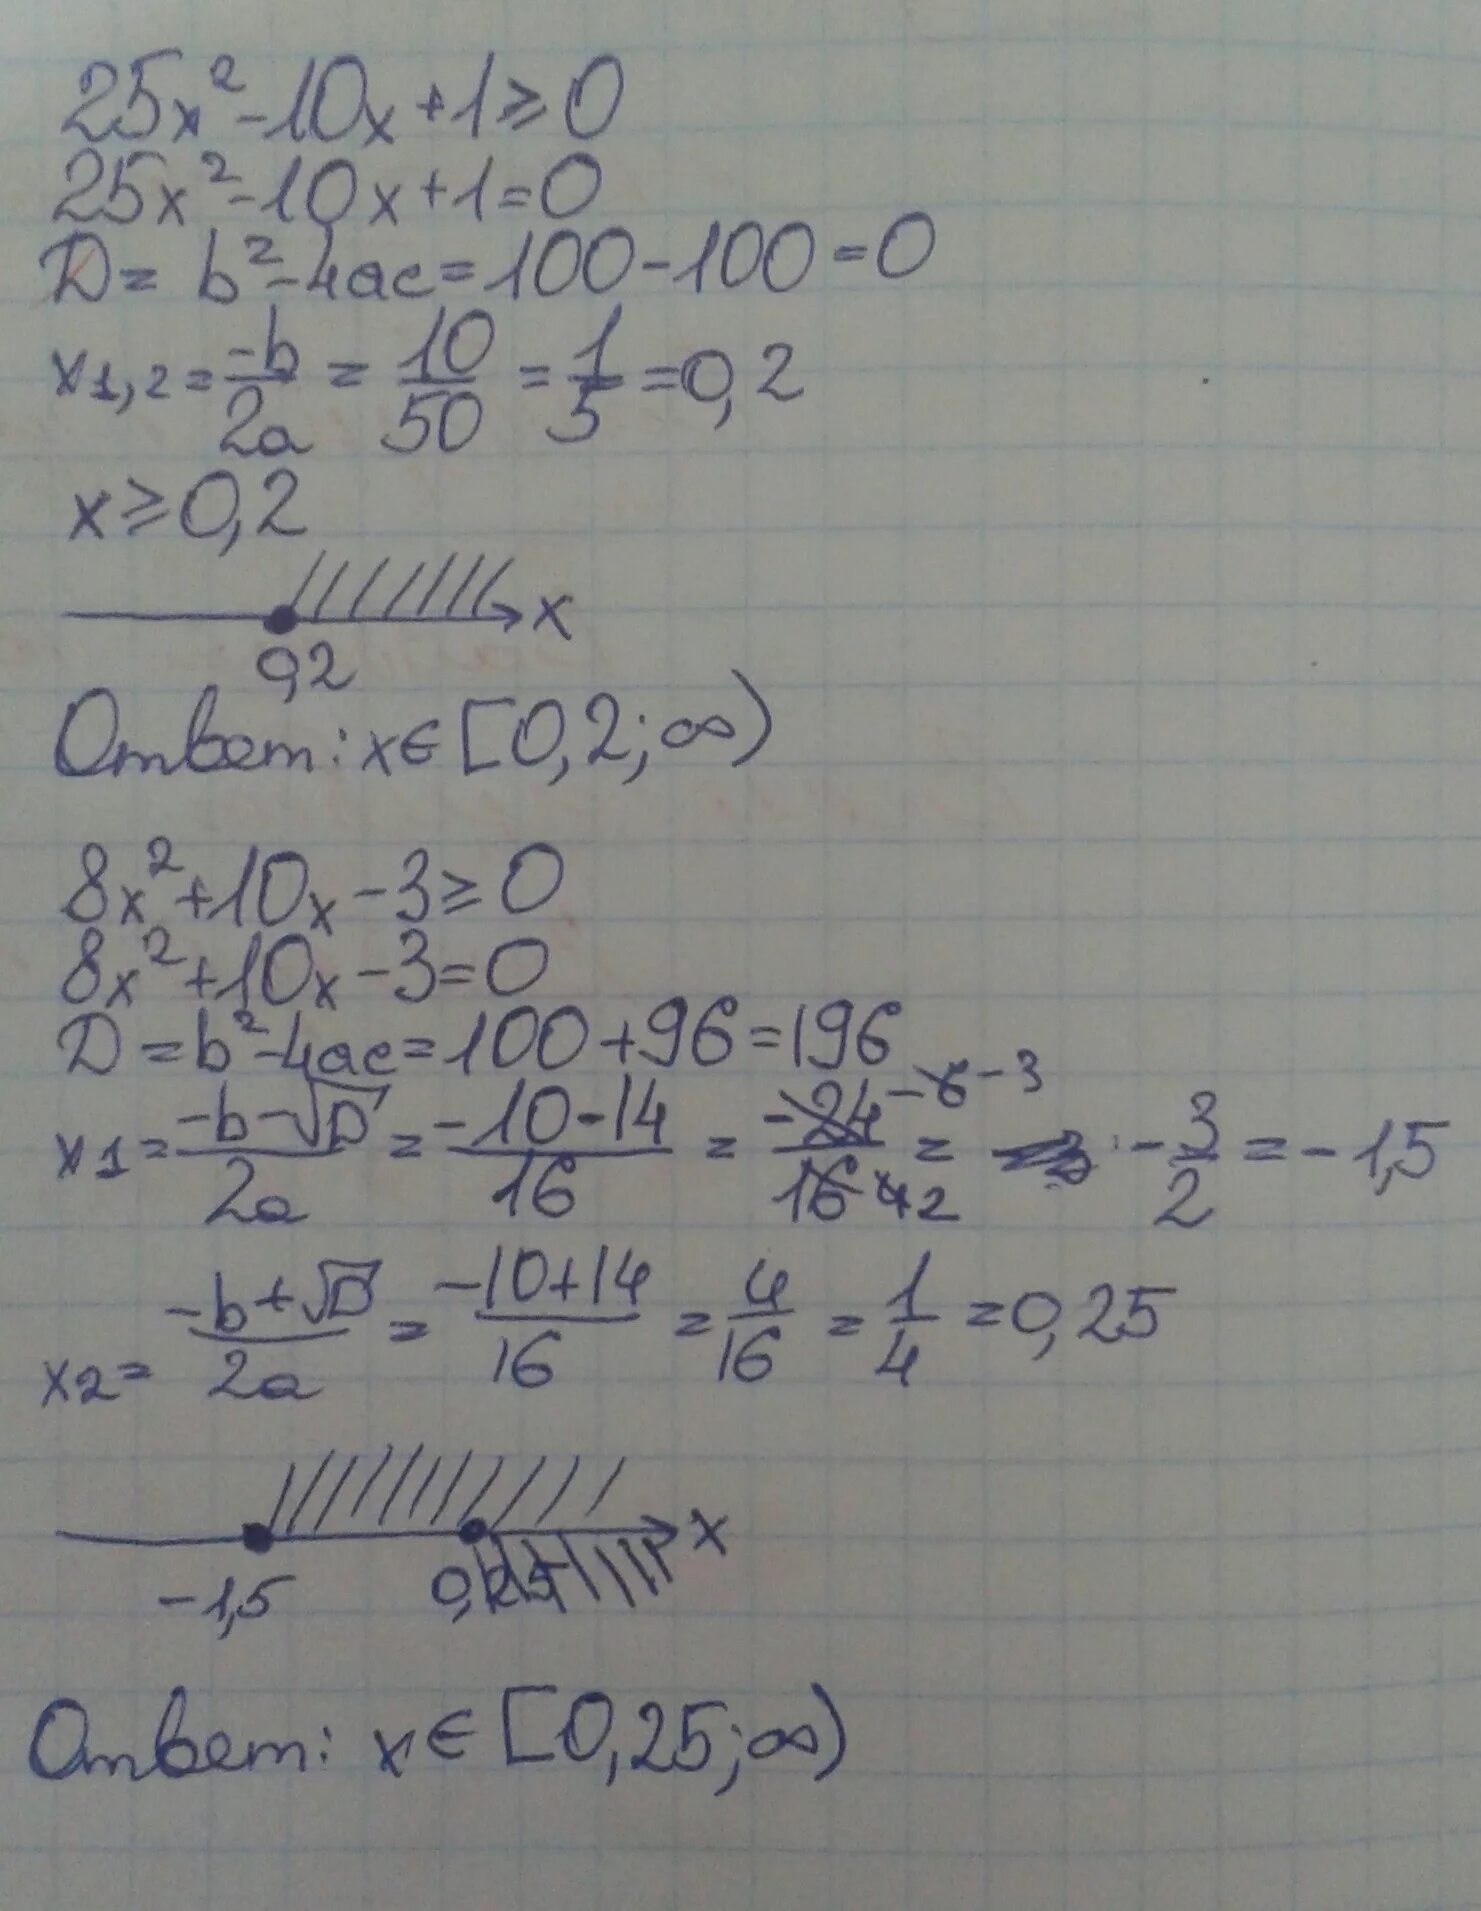 25x²-10x+1≥0
25x²-10x+1=0
D= b²-4ac=100-100=0
x1,2=-b/2a=10/50=1/5=0,2
x≥0,2
x
0,2
Ответ: x∈[0,2;∞)
8x²+10x-3≥0
8x²+10x-3=0
D=b²-4ac=100+96=196
x1=-b-√D/2a=-10-14/16=-24/16=-3/2=-1,5
-6 -3
4 2
x2=-b+√D/2a=-10+14/16=4/16=1/4=0,25
x
-1,5 0,25
Ответ: x∈[0,25;∞)